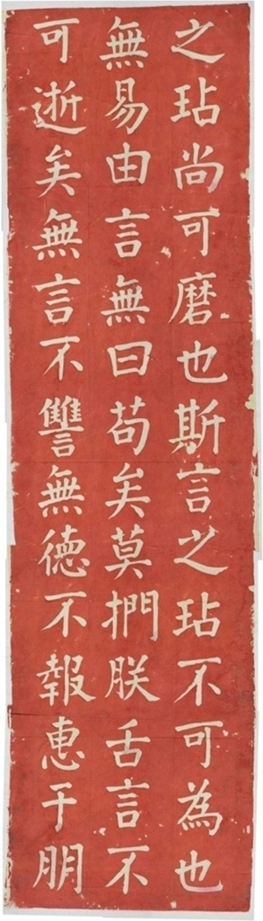 之玷尚可磨也斯言之玷不可為也
無易由言無曰苟矣莫捫朕舌言不
可逝矣無言不讐無德不報惠于朋